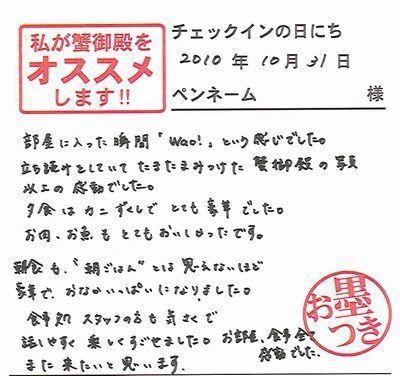 私が蟹御殿を
オススメ
します!!
チェックインの日にち
2010 年 10 月 31 日
ペンネーム 様
部屋に入った瞬間「Wao!」という感じでした。
立ち読みをしていてたまたまみつけた蟹御殿の写真
以上の感動でした。
夕食はカニづくしでとても豪華でした。
お肉、お魚もとてもおいしかったです。
朝食も、"朝ごはん"とは思えないほど
豪華で、おなかいっぱいになりました。
食事処 スタッフの方も気さくで
話しやすく楽しくすごせました。お部屋、食事全て
感動でした。
また来たいと思います。
お墨つき